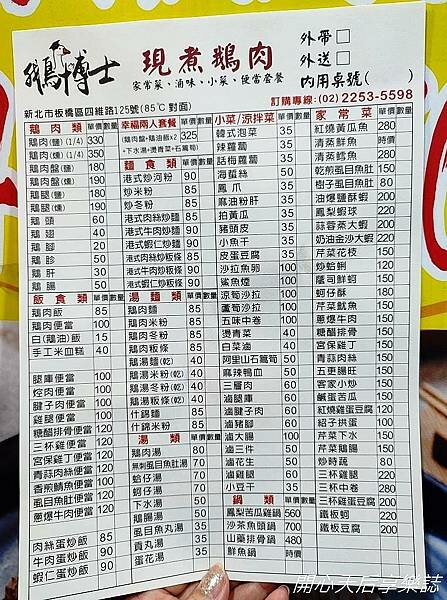 鵝博士
現煮鵝肉
家常菜、滷味、小菜、便當套餐
外帶
外送
內用桌號( )
新北市板橋區四維路125號(85℃ 對面)
訂購專線:(02) 2253-5598
鵝肉類 單價 數量
鵝肉(鹽) (1/4) 330
鵝肉(燻) (1/4) 350
鵝肉盤(鹽) 180
鵝肉盤(燻) 190
鵝腿(鹽) 180
鵝腿(燻) 190
鵝頭 60
鵝翅 40
鵝腳 20
鵝胗 50
鵝肝 30
鵝腸 50
飯食類 單價 數量
鵝肉飯 85
鵝肉便當 100
白(鵝油)飯 15
手工米血糕 40
腿庫便當 100
焢肉便當 100
腱子肉便當 100
雞腿便當 100
糖醋排骨便當 120
三杯雞便當 120
宮保雞丁便當 120
青蒜肉絲便當 120
香煎鯖魚便當 120
虱目魚肚便當 120
蔥爆牛肉便當 120
肉絲蛋炒飯 85
牛肉蛋炒飯 90
蝦仁蛋炒飯 90
幸福兩人套餐 單價 數量
(鵝肉盤+鵝油飯x2
+下水湯+燙青菜+石篇筍) 325
麵食類 單價 數量
港式炒河粉 90
炒米粉 85
炒冬粉 85
港式肉絲炒麵 85
港式牛肉炒麵 90
港式蝦仁炒麵 90
港式肉絲炒粄條 85
港式牛肉炒粄條 90
港式蝦仁炒粄條 90
湯麵類 單價 數量
鵝肉麵 85
鵝肉米粉 85
鵝肉冬粉 85
鵝肉粄條 85
鵝湯麵(乾) 40
鵝湯米粉(乾) 40
鵝湯冬粉(乾) 40
鵝湯粄條(乾) 40
什錦麵 85
什錦米粉 85
湯類 單價 數量
鵝肉湯 80
無刺虱目魚肚湯 70
蛤仔湯 70
蚵仔湯 70
下水湯 50
鵝腸湯 50
虱目魚丸湯 35
貢丸湯 35
蛋花湯 35
小菜/涼拌菜 單價 數量
韓式泡菜 35
辣蘿蔔 35
話梅蘿蔔 35
海蜇絲 50
鳳爪 50
麻油粉肝 50
拍黃瓜 35
豬頭皮 35
小魚干 35
皮蛋豆腐 35
沙拉魚卵 100
鯊魚煙 100
涼筍沙拉 100
蘆筍沙拉 100
五味中卷 100
燙青菜 40
白菜滷 40
阿里山石篇筍 40
麻辣鴨血 50
三層肉 60
滷腿庫 60
滷腱子肉 60
滷豬腳 60
滷大腸 100
滷三件 50
滷花生 50
滷雞腿 60
小豆干 35
鍋類 單價 數量
鳳梨苦瓜雞鍋 560
沙茶魚頭鍋 700
山藥排骨鍋 480
鮮魚鍋 時價
家常菜 單價 數量
紅燒黃瓜魚 280
清蒸鮮魚 時價
清蒸鱈魚 280
乾煎虱目魚肚 150
樹子虱目魚肚 80
油爆鹽酥蝦 200
鳳梨蝦球 220
蒜蓉蒸大蝦 200
奶油金沙大蝦 220
芹菜花枝 150
炒蛤蜊 120
蔭司鮮蚵 180
蚵仔酥 180
芹菜魷魚 150
蔥爆牛肉 150
糖醋排骨 150
宮保雞丁 150
青蒜肉絲 150
五更腸旺 150
客家小炒 150
鹹蛋苦瓜 150
紅燒雞蛋豆腐 120
紹子拱蛋 100
芹菜下水 150
芹菜鵝腸 150
炒時蔬 80
三杯雞 200
三杯中卷 280
三杯雞蛋豆腐 200
鐵板蚵 220
鐵板豆腐 200
開心天后享樂誌